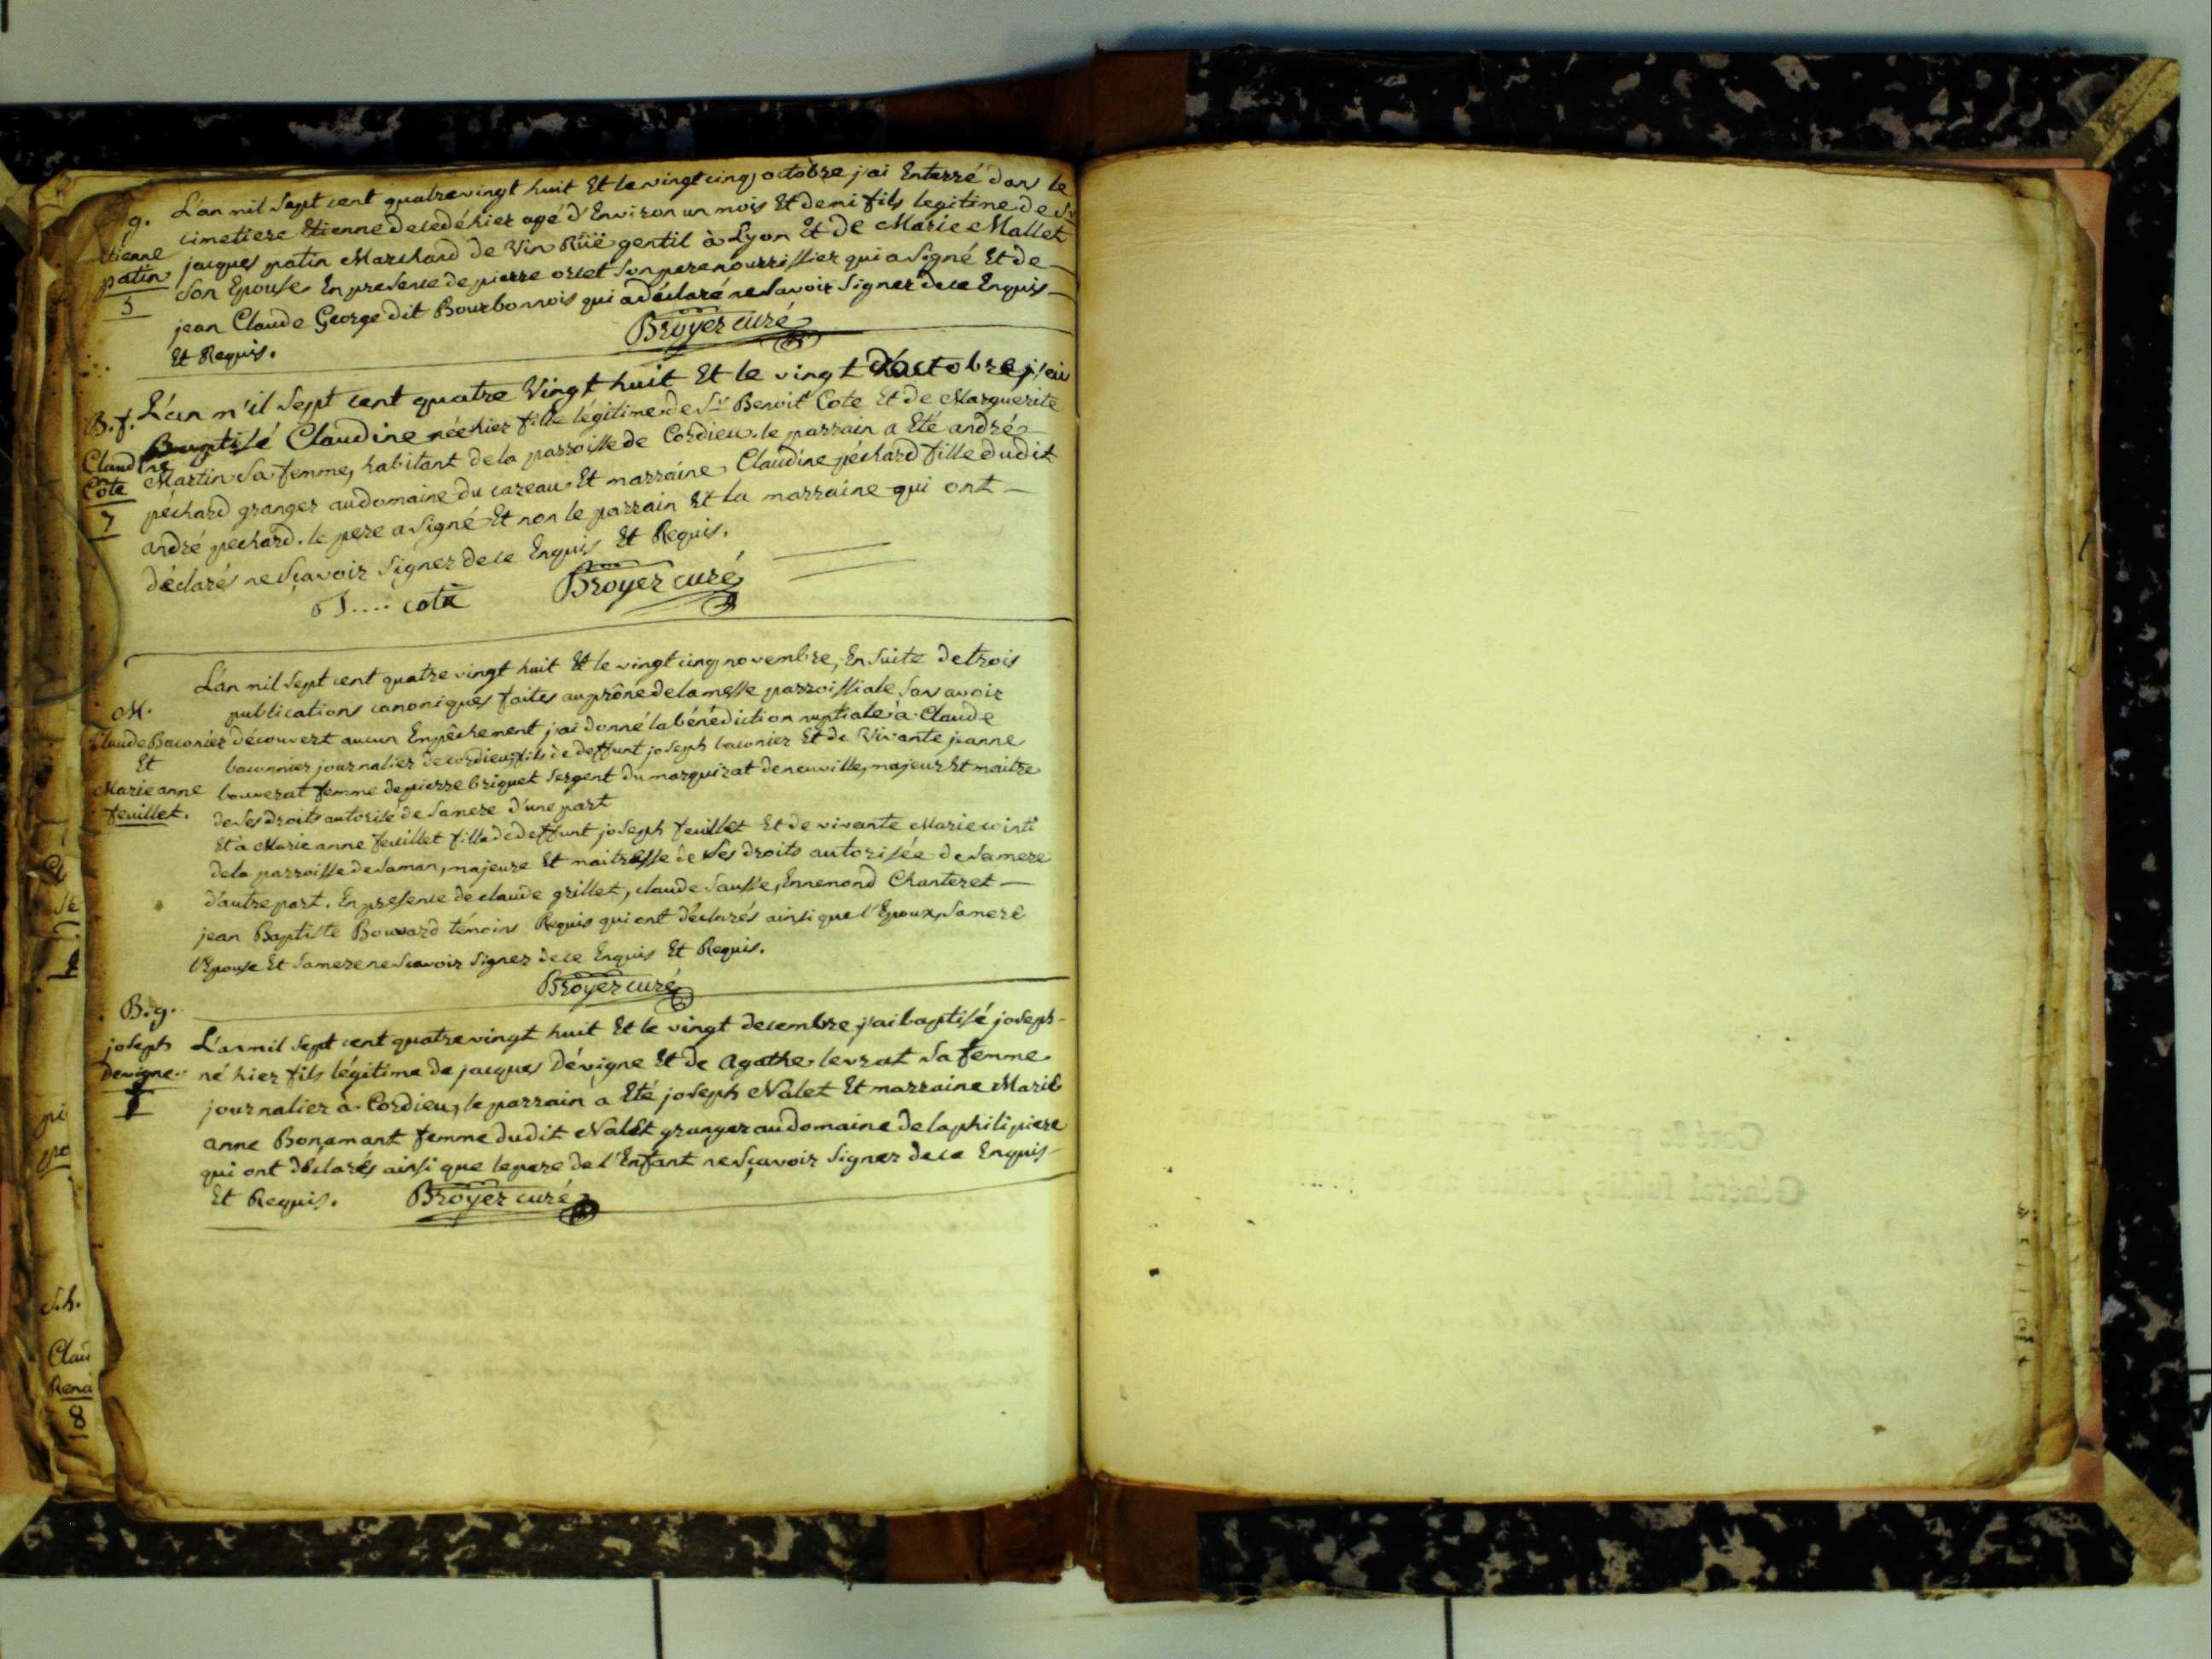 g.
Etienne
patin
5
L'an mil sept cent quatrevingt huit Et le vingt cinq octobre j'ai Enterré dans le
cimetiere Etienne decedé hier agé d'Environ un mois Et demi fils legitime de Sr
jacques patin Marchand de Vin Rüe gentil à Lyon Et de Marie Mallet
son Epouse. En presence de pierre orset son pere nourrissier qui a signé Et de
jean Claude George dit Bourbonnois qui a déclaré ne savoir signer de ce Enquis
Et Requis.
Broyer curé
B.f.
Claudine
Cote
7
L'an m'il sept cent quatre Vingt huit Et le vingt d'octobre j'ai
Baptisé Claudine née hier fille légitime de Sr Benoit Cote Et de Marguerite
Martin sa femme, habitant de la parroisse de Cordieu. le parrain a Eté andré
péchard granger au domaine du careau Et marraine Claudine péchard fille dudit
andré pechard. le pere a signé Et non le parrain Et la marraine qui ont
déclarés ne sçavoir signer de ce Enquis Et Requis.
cote
Broyer curé
M.
Claude Baconier
Et
Marie anne
feuillet.
L'an mil sept cent quatre vingt huit Et le vingt cinq novembre, En suite de trois
publications canoniques faites au prône de la messe parroissiale sans avoir
découvert aucun Empêchement j'ai donné la bénédiction nuptiale à Claude
baconnier journalier de cordieu fils de deffunt joseph baconier Et de Vivante jeanne
bouverat femme de pierre briquet sergent du marquizat de neuville, majeur Et maitre
de ses droits autorisé de sa mere d'une part
Et à Marie anne feuillet fille de deffunt joseph feuillet Et de vivante Marie
de la parroisse de saman, majeure Et maitresse de ses droits autorisée de sa mere
d'autre part. En presence de claude grillet, claude sausse, Ennemond Chanteret
jean Baptiste Bouvard témoins Requis qui ont déclarés ainsi que l'Epoux, sa mere
l'Epouse Et sa mere ne scavoir signer de ce Enquis Et Requis.
Broyer curé
B.g.
joseph
Devigne
L'an mil sept cent quatre vingt huit Et le vingt decembre j'ai baptisé joseph
né hier fils légitime de jacques Dévigne Et de Agathe levrat sa femme
journalier à Cordieu, le parrain a Eté joseph Nalet Et marraine Marie
anne Bonamant femme dudit Nalet granger au domaine de la philipiere
qui ont déclarés ainsi que le pere de l'Enfant ne sçavoir signer de ce Enquis
Et Requis.
Broyer curé
S.h.
Clau
Rena
8